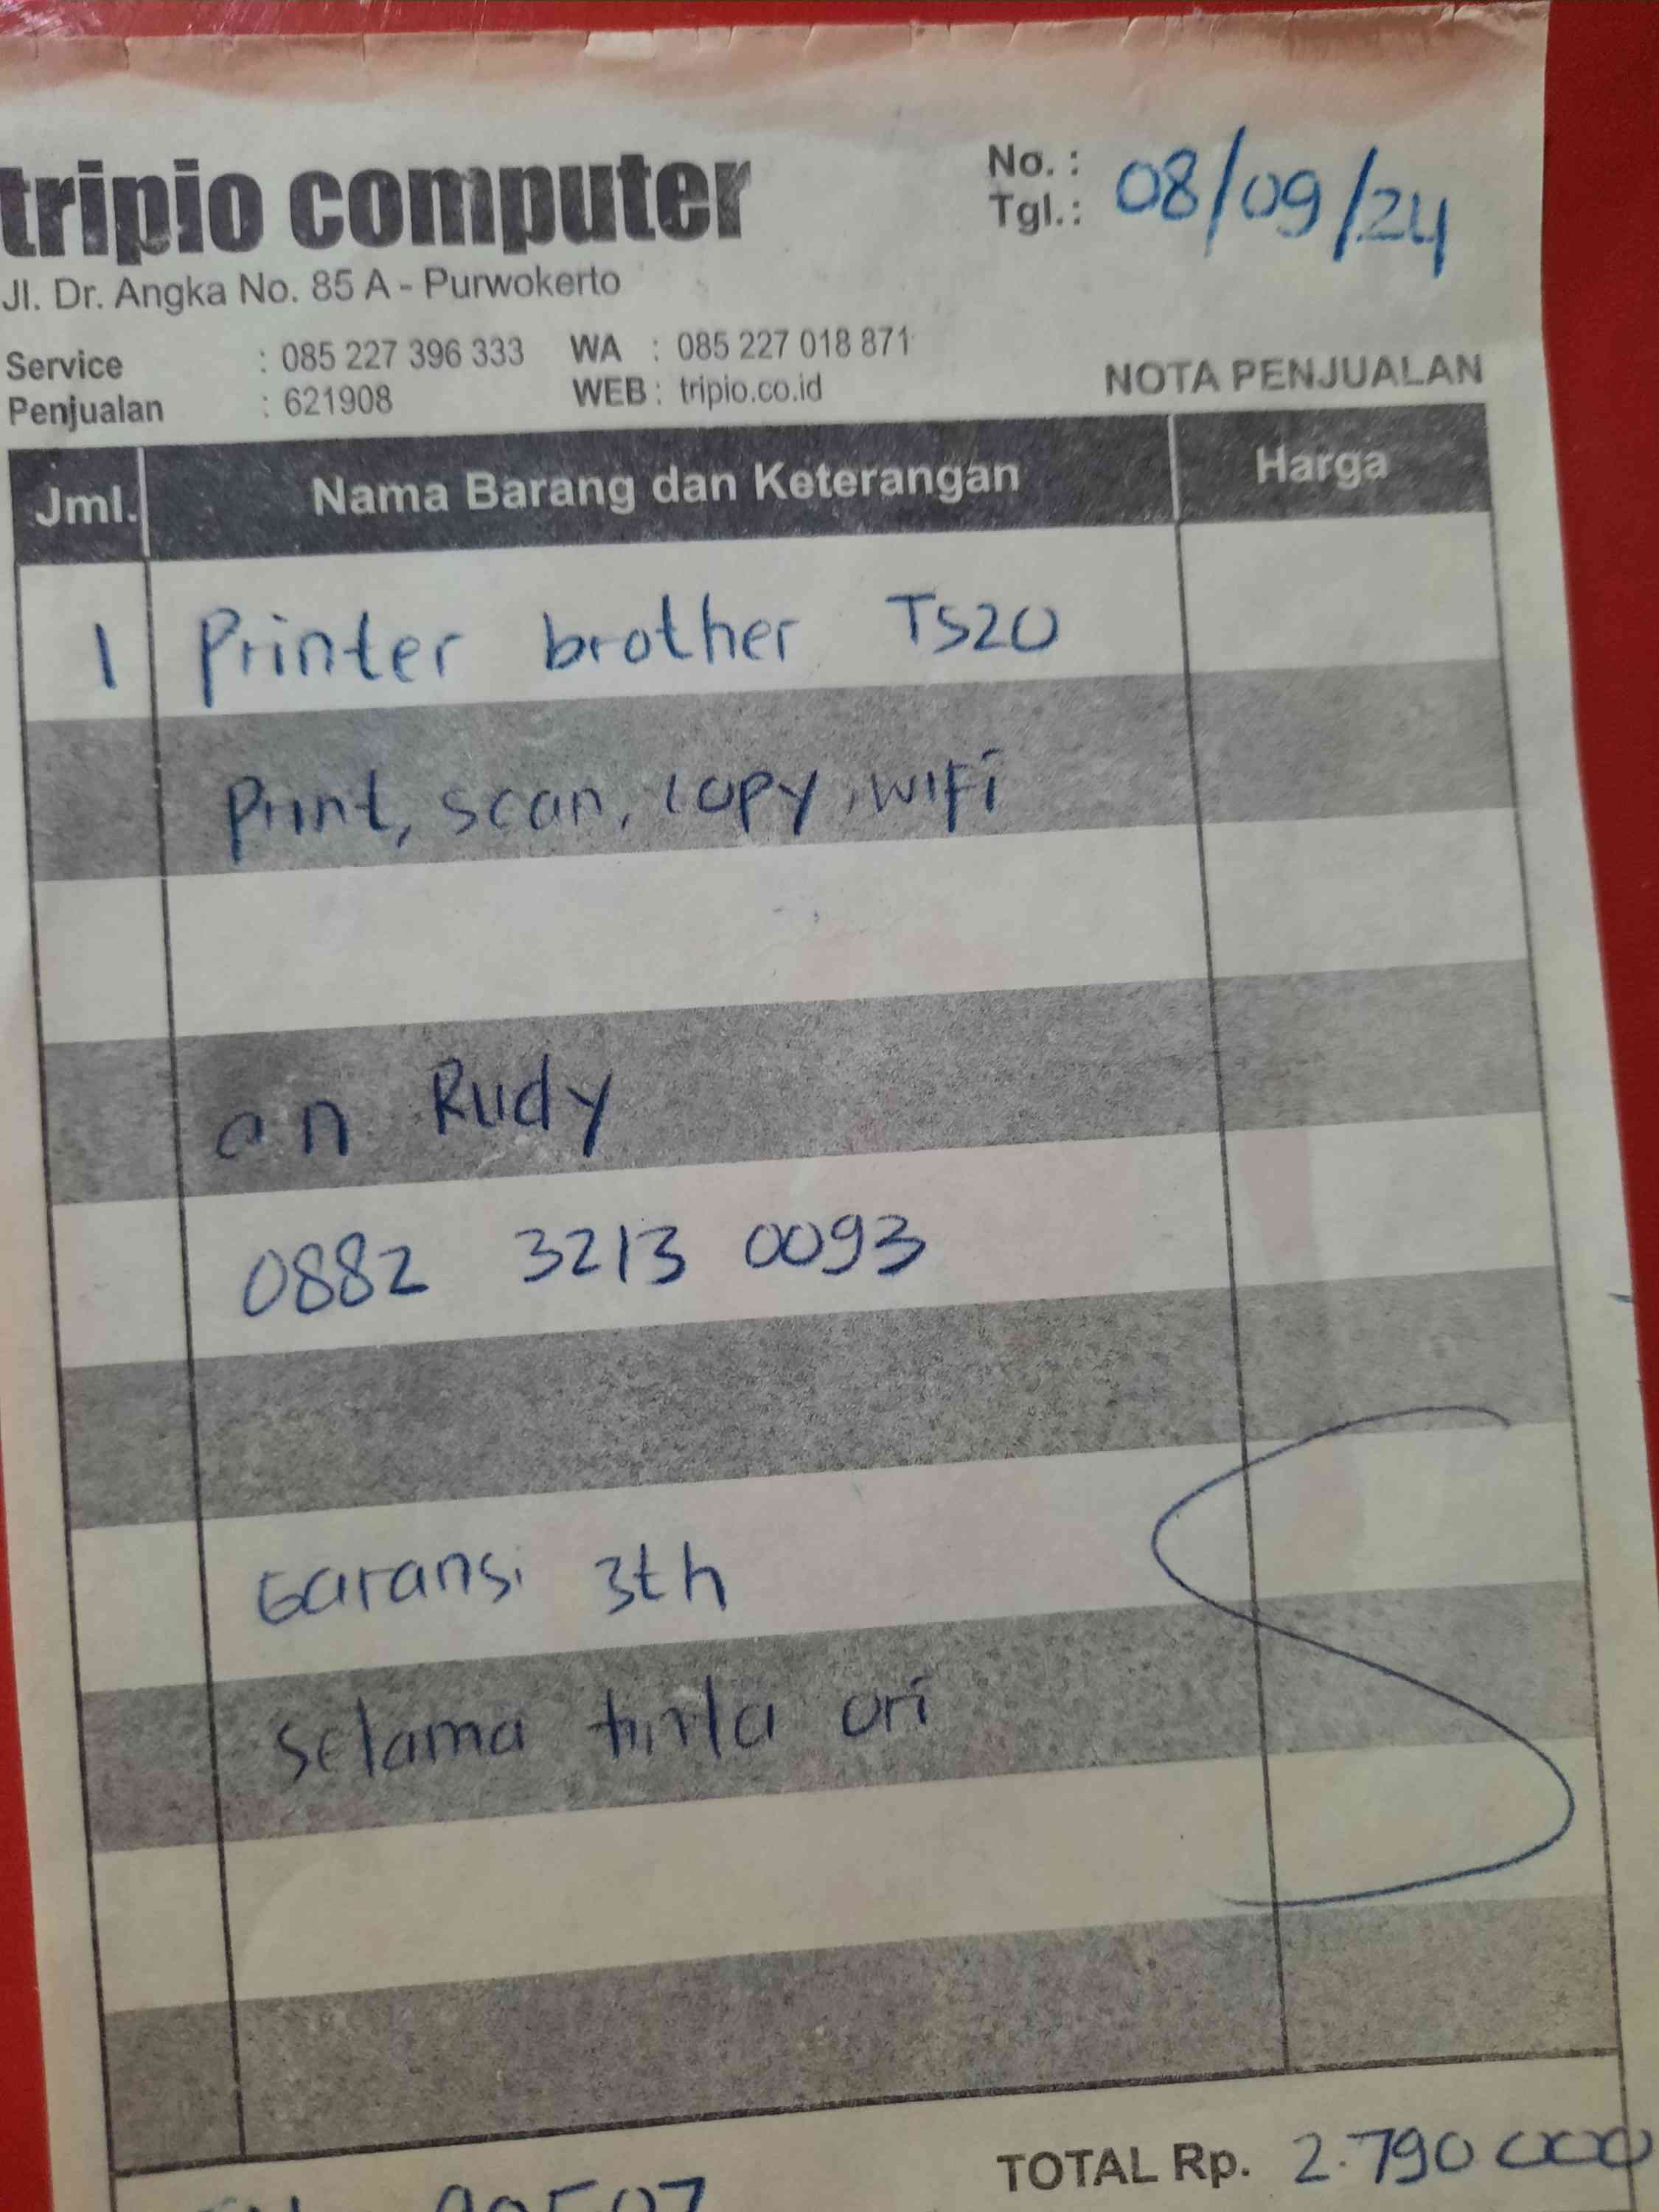 tripio computer
Jl. Dr. Angka No. 85 A - Purwokerto
Service : 085 227 396 333 WA : 085 227 018 871
Penjualan : 621908 WEB : tripio.co.id
No. :
Tgl. : 08/09/24
NOTA PENJUALAN
Jml. Nama Barang dan Keterangan Harga
1 Printer brother T520
Print, scan, copy, wifi
an Rudy
0882 3213 0093
Garansi 3th
Selama tinta ori
TOTAL Rp. 2.790 000